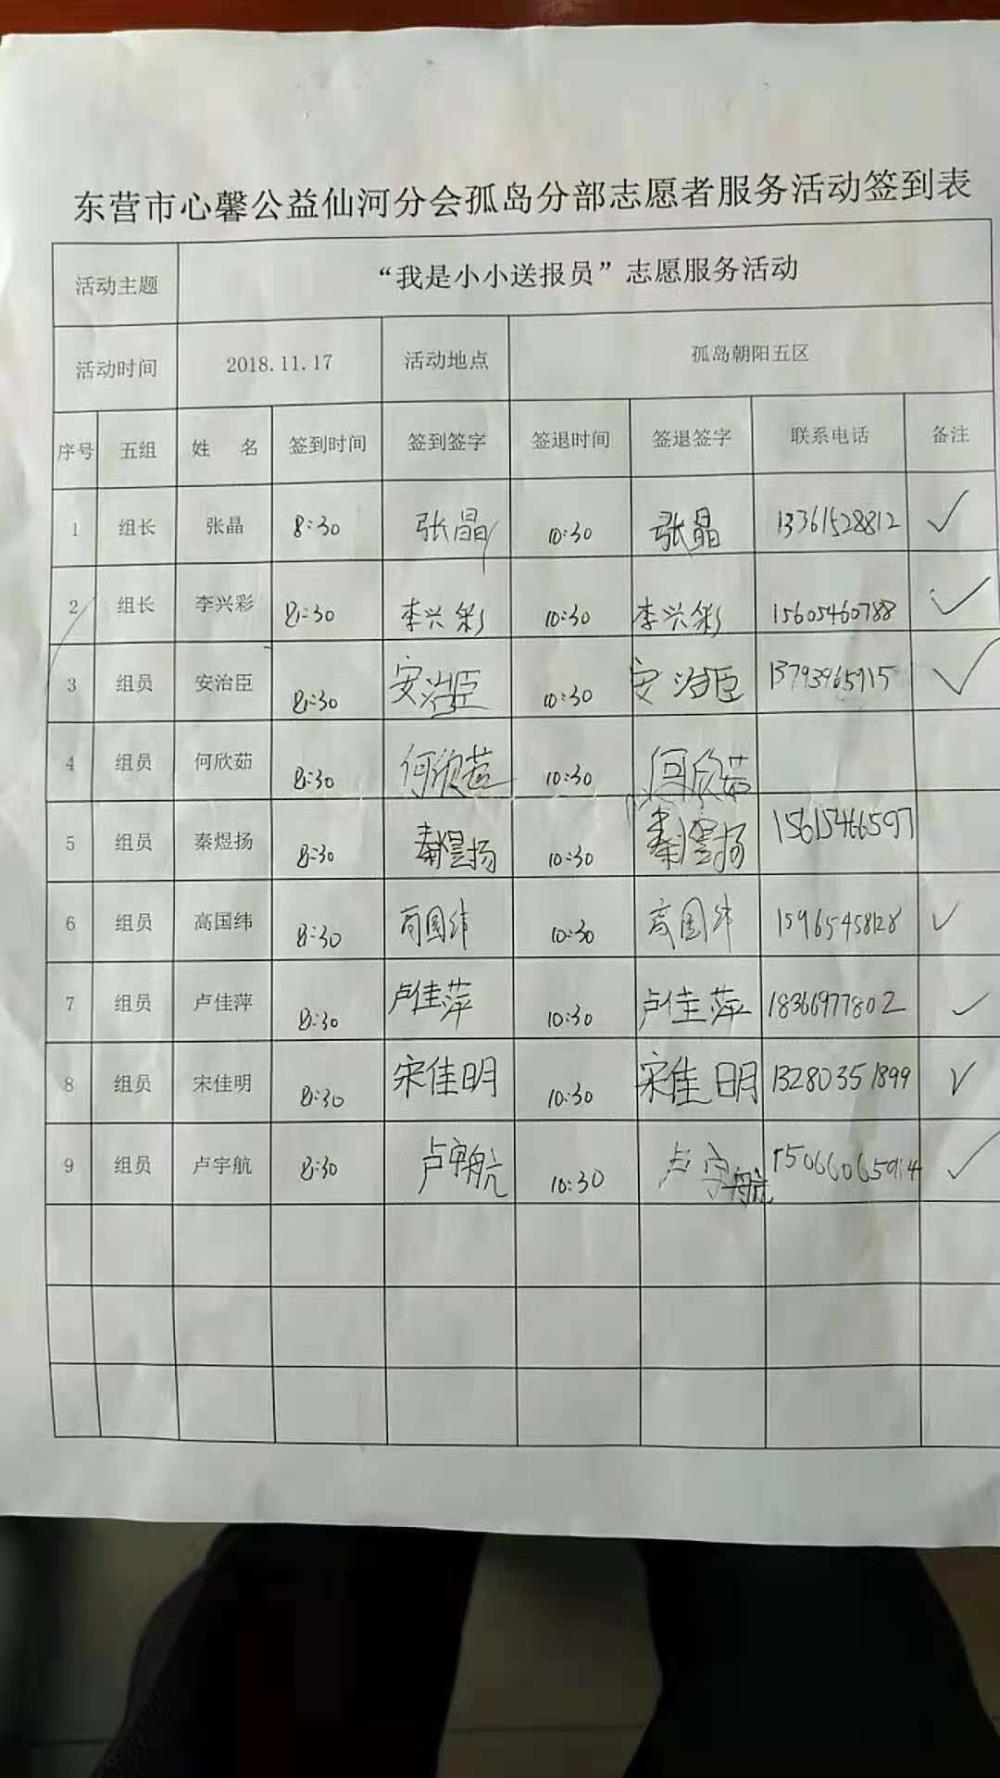 东营市心馨公益仙河分会孤岛分部志愿者服务活动签到表
活动主题 “我是小小送报员”志愿服务活动
活动时间 2018.11.17 活动地点 孤岛朝阳五区
序号 五组 姓 名 签到时间 签到签字 签退时间 签退签字 联系电话 备注
1 组长 张晶 8:30 张晶 10:30 张晶 13361528812 ✓
2 组长 李兴彩 8:30 李兴彩 10:30 李兴彩 15605460788 ✓
3 组员 安治臣 8:30 安治臣 10:30 安治臣 13793965915 ✓
4 组员 何欣茹 8:30 何欣茹 10:30 何欣茹
5 组员 秦煜扬 8:30 秦煜扬 10:30 秦煜扬 15615466597
6 组员 高国纬 8:30 高国纬 10:30 高国纬 15965458128 ✓
7 组员 卢佳萍 8:30 卢佳萍 10:30 卢佳萍 18366977802 ✓
8 组员 宋佳明 8:30 宋佳明 10:30 宋佳明 13280351899 ✓
9 组员 卢宇航 8:30 卢宇航 10:30 卢宇航 15066065914 ✓